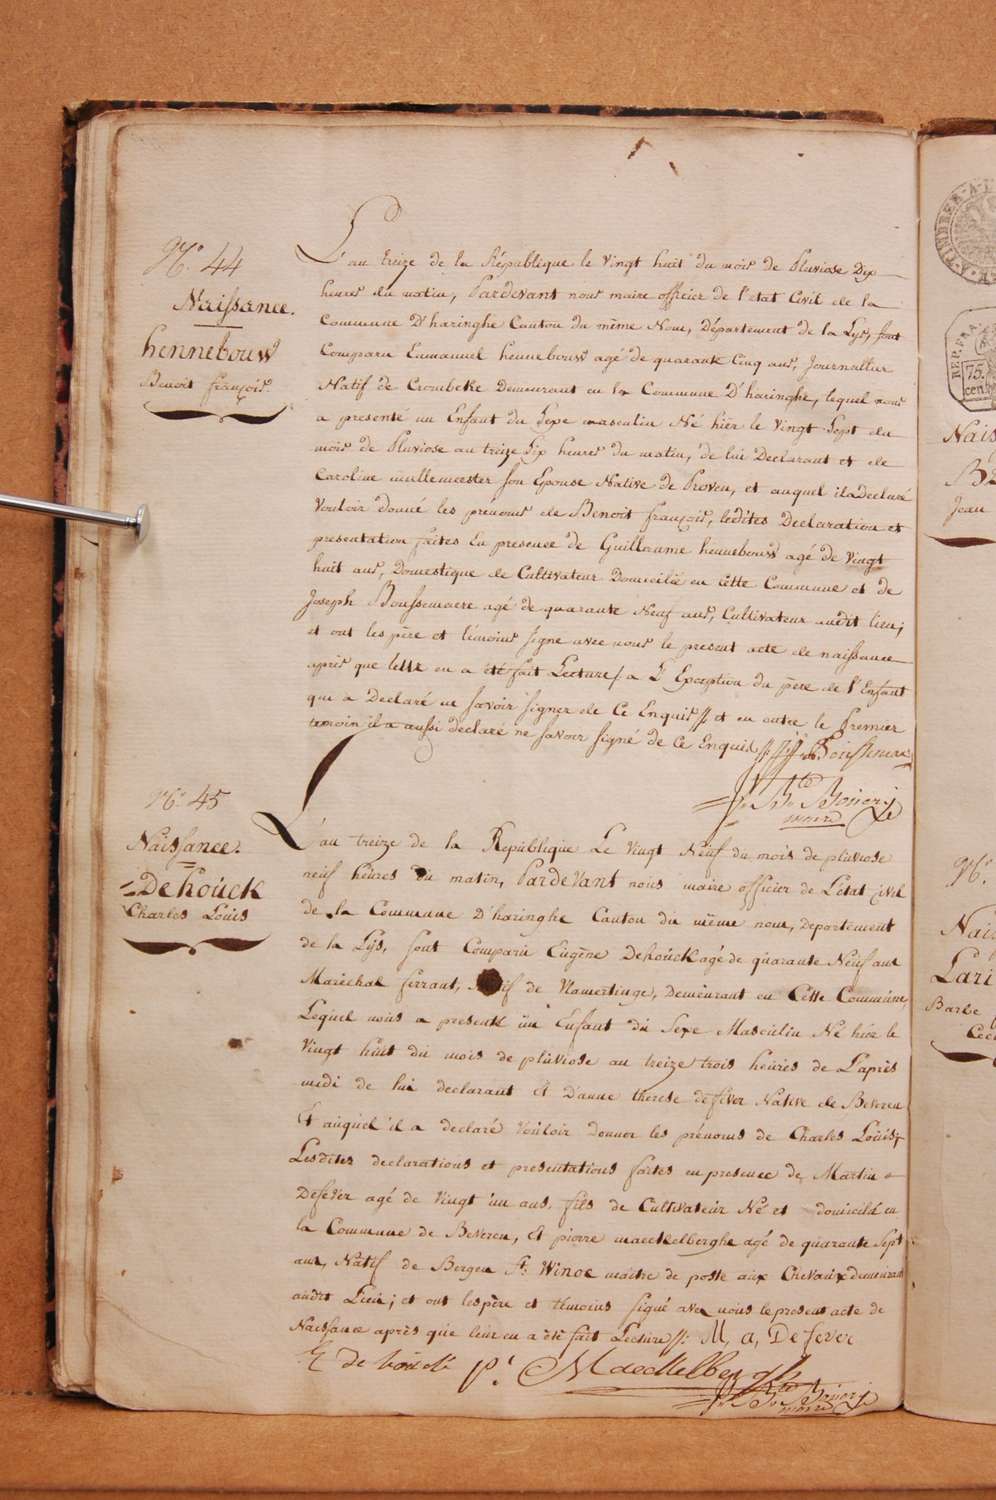 N.º 44
Naissance.
hennebouw
Benoit françois.
L'an treize de la République le Vingt huit du mois de Pluviose Dix
heures du matin, Pardevant nous maire officier de l'état Civil de la
Commune D'haringhe Canton du même Nom, Département de la Lys, sont
Comparu Emmanuel hennebouw agé de quarante Cinq ans, Journallier
Natif de Crombeke Demeurant en la Commune D'haringhe, lequel nous
a presenté un Enfant du Sexe masculin Né hier le Vingt Sept du
mois de Pluviose an treize Six heures du matin, de lui Declarant et de
Caroline meullemeester son Epouse Native de Proven, et auquel il a Declaré
Vouloir donné les prénoms de Benoit François, lesdites Declaration et
presentation faites En presence de Guillaume hennebouw agé de Vingt
huit ans, Domestique de Cultivateur Domicilié en Cette Commune et de
Joseph Boussemaere agé de quarante Neuf ans, Cultivateur audit lieu;
et ont les père et témoins signe avec nous le present acte de naissance
après que lettr en a été fait Lecture / a L'Exception du père de l'Enfant
qui a Declaré ne savoir signer de Ce Enquis // et en outre le Premier
temoin il a aussi declaré ne savoir signé de Ce Enquis
maire
N.º 45
Naissance.
Dehouck
Charles Louis
L'an treize de la République Le Vingt Neuf du mois de pluviose
neuf heures du matin, Pardevant nous maire officier de L'etat Civil
de la Commune D'haringhe Canton du même nom, Departement
de la Lys, sont Comparu Eugène Dehouck agé de quarante Neuf ans
Maréchal ferrant, Natif de Vlamertinge, Demeurant en Cette Commune,
Lequel nous a presenté un Enfant du Sexe Masculin Né hier le
Vingt huit du mois de pluviose an treize trois heures de L'après
midi de lui declarant et D'anne therese defever Native de Beveren
Et auquel il a declaré Vouloir Donner les prénoms de Charles Louis,
Lesdites declarations et presentations faites en presence de Martin
Defever agé de Vingt un ans, fils de Cultivateur Né et domicilié en
la Commune de Beveren, et pierre maeckelberghe agé de quarante Sept
ans, Natif de Bergen St. Winoc maitre de poste aux Chevaux demeurant
audit Lieu; et ont les père et témoins signé avec nous le present acte de
Naissance après que leur en a été fait Lecture //: M, a, Defever
E De houck p.r Maeckelberghe
maire
Nais
Jean
N.º
Nais
Lari
Barbe
DEP. FRA.
75.
cen.